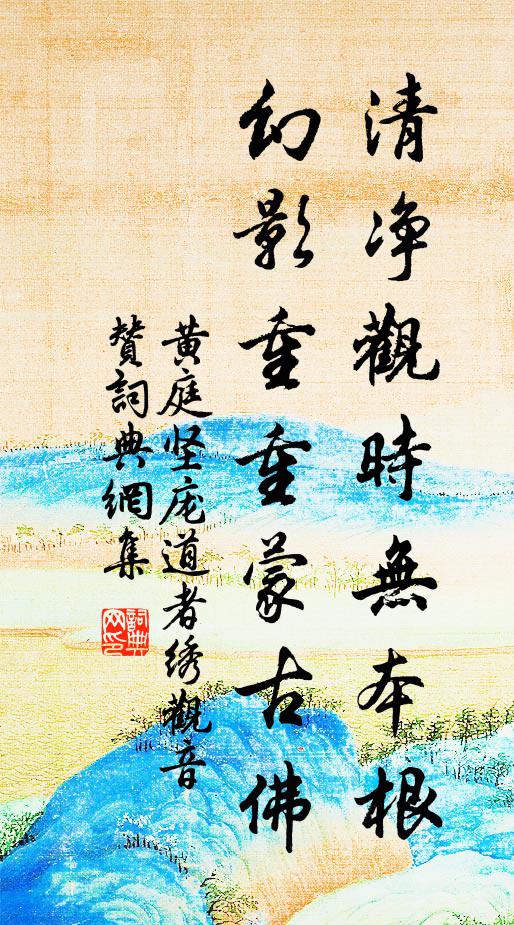 清净觀時無本根
幻影重重蒙古佛
黄庭坚庞道者绣觀音
贊詞典網集
詞典
网印